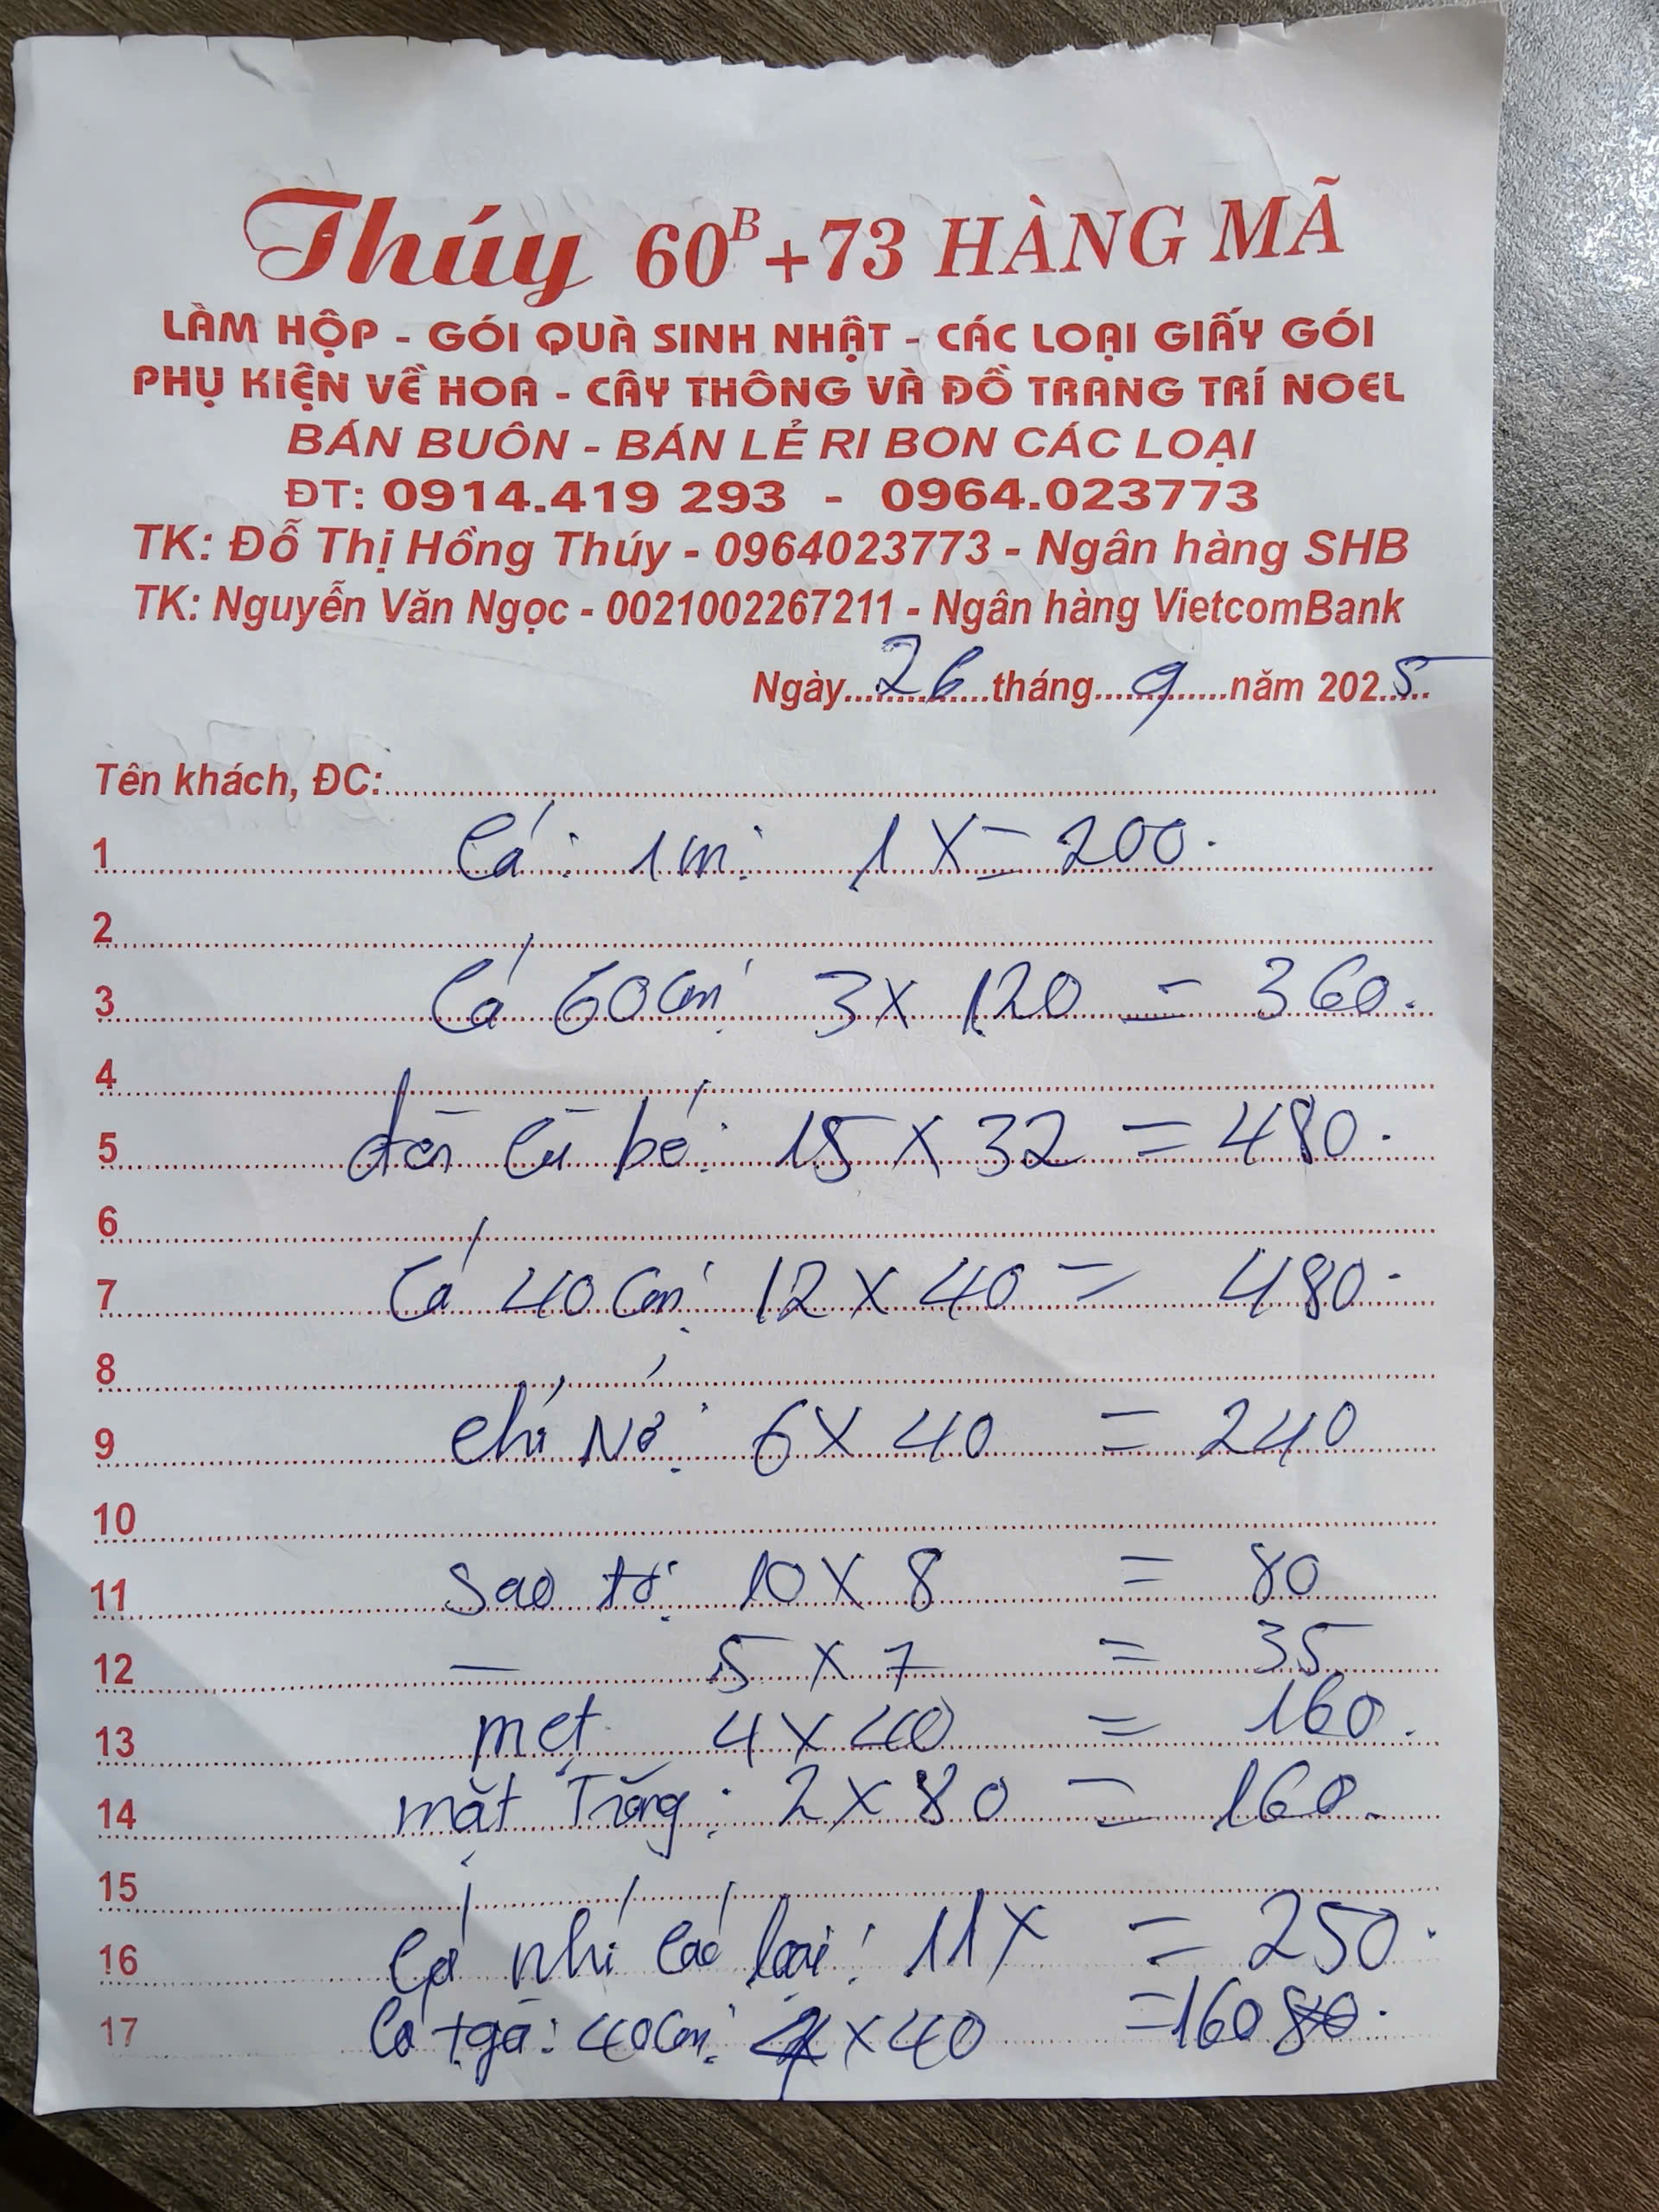 Thúy 60B+73 HÀNG MÃ
LÀM HỘP - GÓI QUÀ SINH NHẬT - CÁC LOẠI GIẤY GÓI
PHỤ KIỆN VỀ HOA - CÂY THÔNG VÀ ĐỒ TRANG TRÍ NOEL
BÁN BUÔN - BÁN LẺ RI BON CÁC LOẠI
ĐT: 0914.419 293 - 0964.023773
TK: Đỗ Thị Hồng Thúy - 0964023773 - Ngân hàng SHB
TK: Nguyễn Văn Ngọc - 0021002267211 - Ngân hàng VietcomBank
Ngày 26 tháng 9 năm 2025
Tên khách, ĐC:
1 Cá: 1m: 1 X = 200.
2
3 Cá 60cm: 3 X 120 = 360.
4
5 đèn cù bé: 15 X 32 = 480.
6
7 Cá 40cm: 12 X 40 = 480.
8
9 6 X 40 = 240
10
11 Sao 10 X 8 = 80
12 — 5 X 7 = 35
13 mẹt 4 X 40 = 160.
14 mặt Trăng: 2 X 80 = 160.
15
16 Cá nhí các loại: 11 X = 250.
17 40cm: 4 X 40 = 160